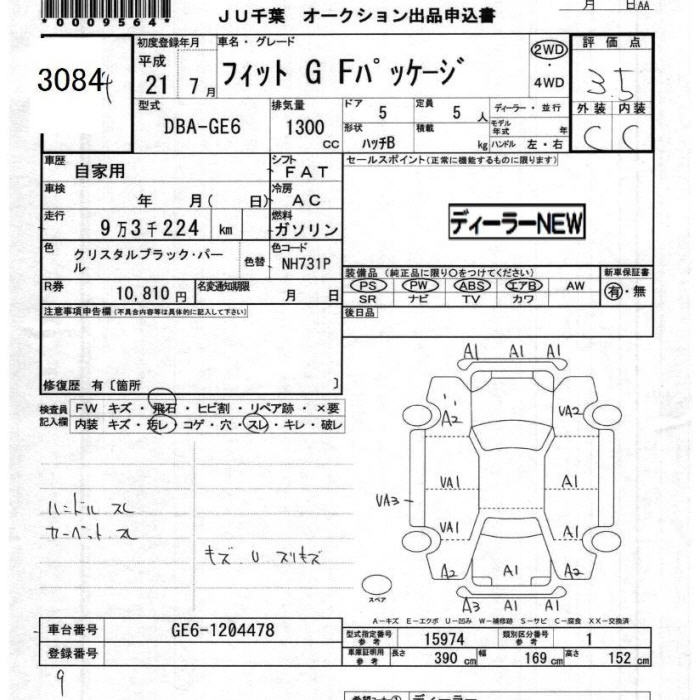 *0009564*
JU千葉 オークション出品申込書
月 日AA
3084 4
初度登録年月
平成
21 7月
車名・グレード
フィット G Fパッケージ
2WD
・
4WD
評価点
3.5
外装 内装
C C
型式
DBA-GE6
排気量
1300 cc
ドア 5
定員 5 人
ディーラー・並行
形状 ハッチB
積載 kg
モデル年式 年
ハンドル 左・右
車歴 自家用
シフト FAT
セールスポイント(正常に機能するものに限ります)
車検 年 月( 日)
冷房 AC
走行 9万3千224 km
燃料 ガソリン
ディーラーNEW
色 クリスタルブラック・パール
色替
色コード NH731P
装備品(純正品に限り○をつけてください)
新車保証書
PS PW ABS エアB AW
SR ナビ TV カワ
有・無
R券 10,810円
名変通知期限 月 日
注意事項申告欄(不具合内容等は具体的に記入して下さい)
後日品
修復歴 有〔箇所 〕
検査員記入欄
FW キズ・飛石・ヒビ割・リペア跡・×要
内装 キズ・汚レ・コゲ・穴・スレ・キレ・破レ
A1 A1 A1
A2 VA2
VA1 A1
VA3
VA1 A1
A2 A1 A2
A3 A1 A1
ハンドル スレ
カーペット スレ
キズ U スリキズ
スペア
A-キズ E-エクボ U-凹み W-補修跡 S-サビ C-腐食 XX-交換済
車台番号 GE6-1204478
登録番号
型式指定番号 参考 15974
類別区分番号 参考 1
車庫証明用 参考 長さ 390cm 幅 169cm 高さ 152cm
9
ディーラー